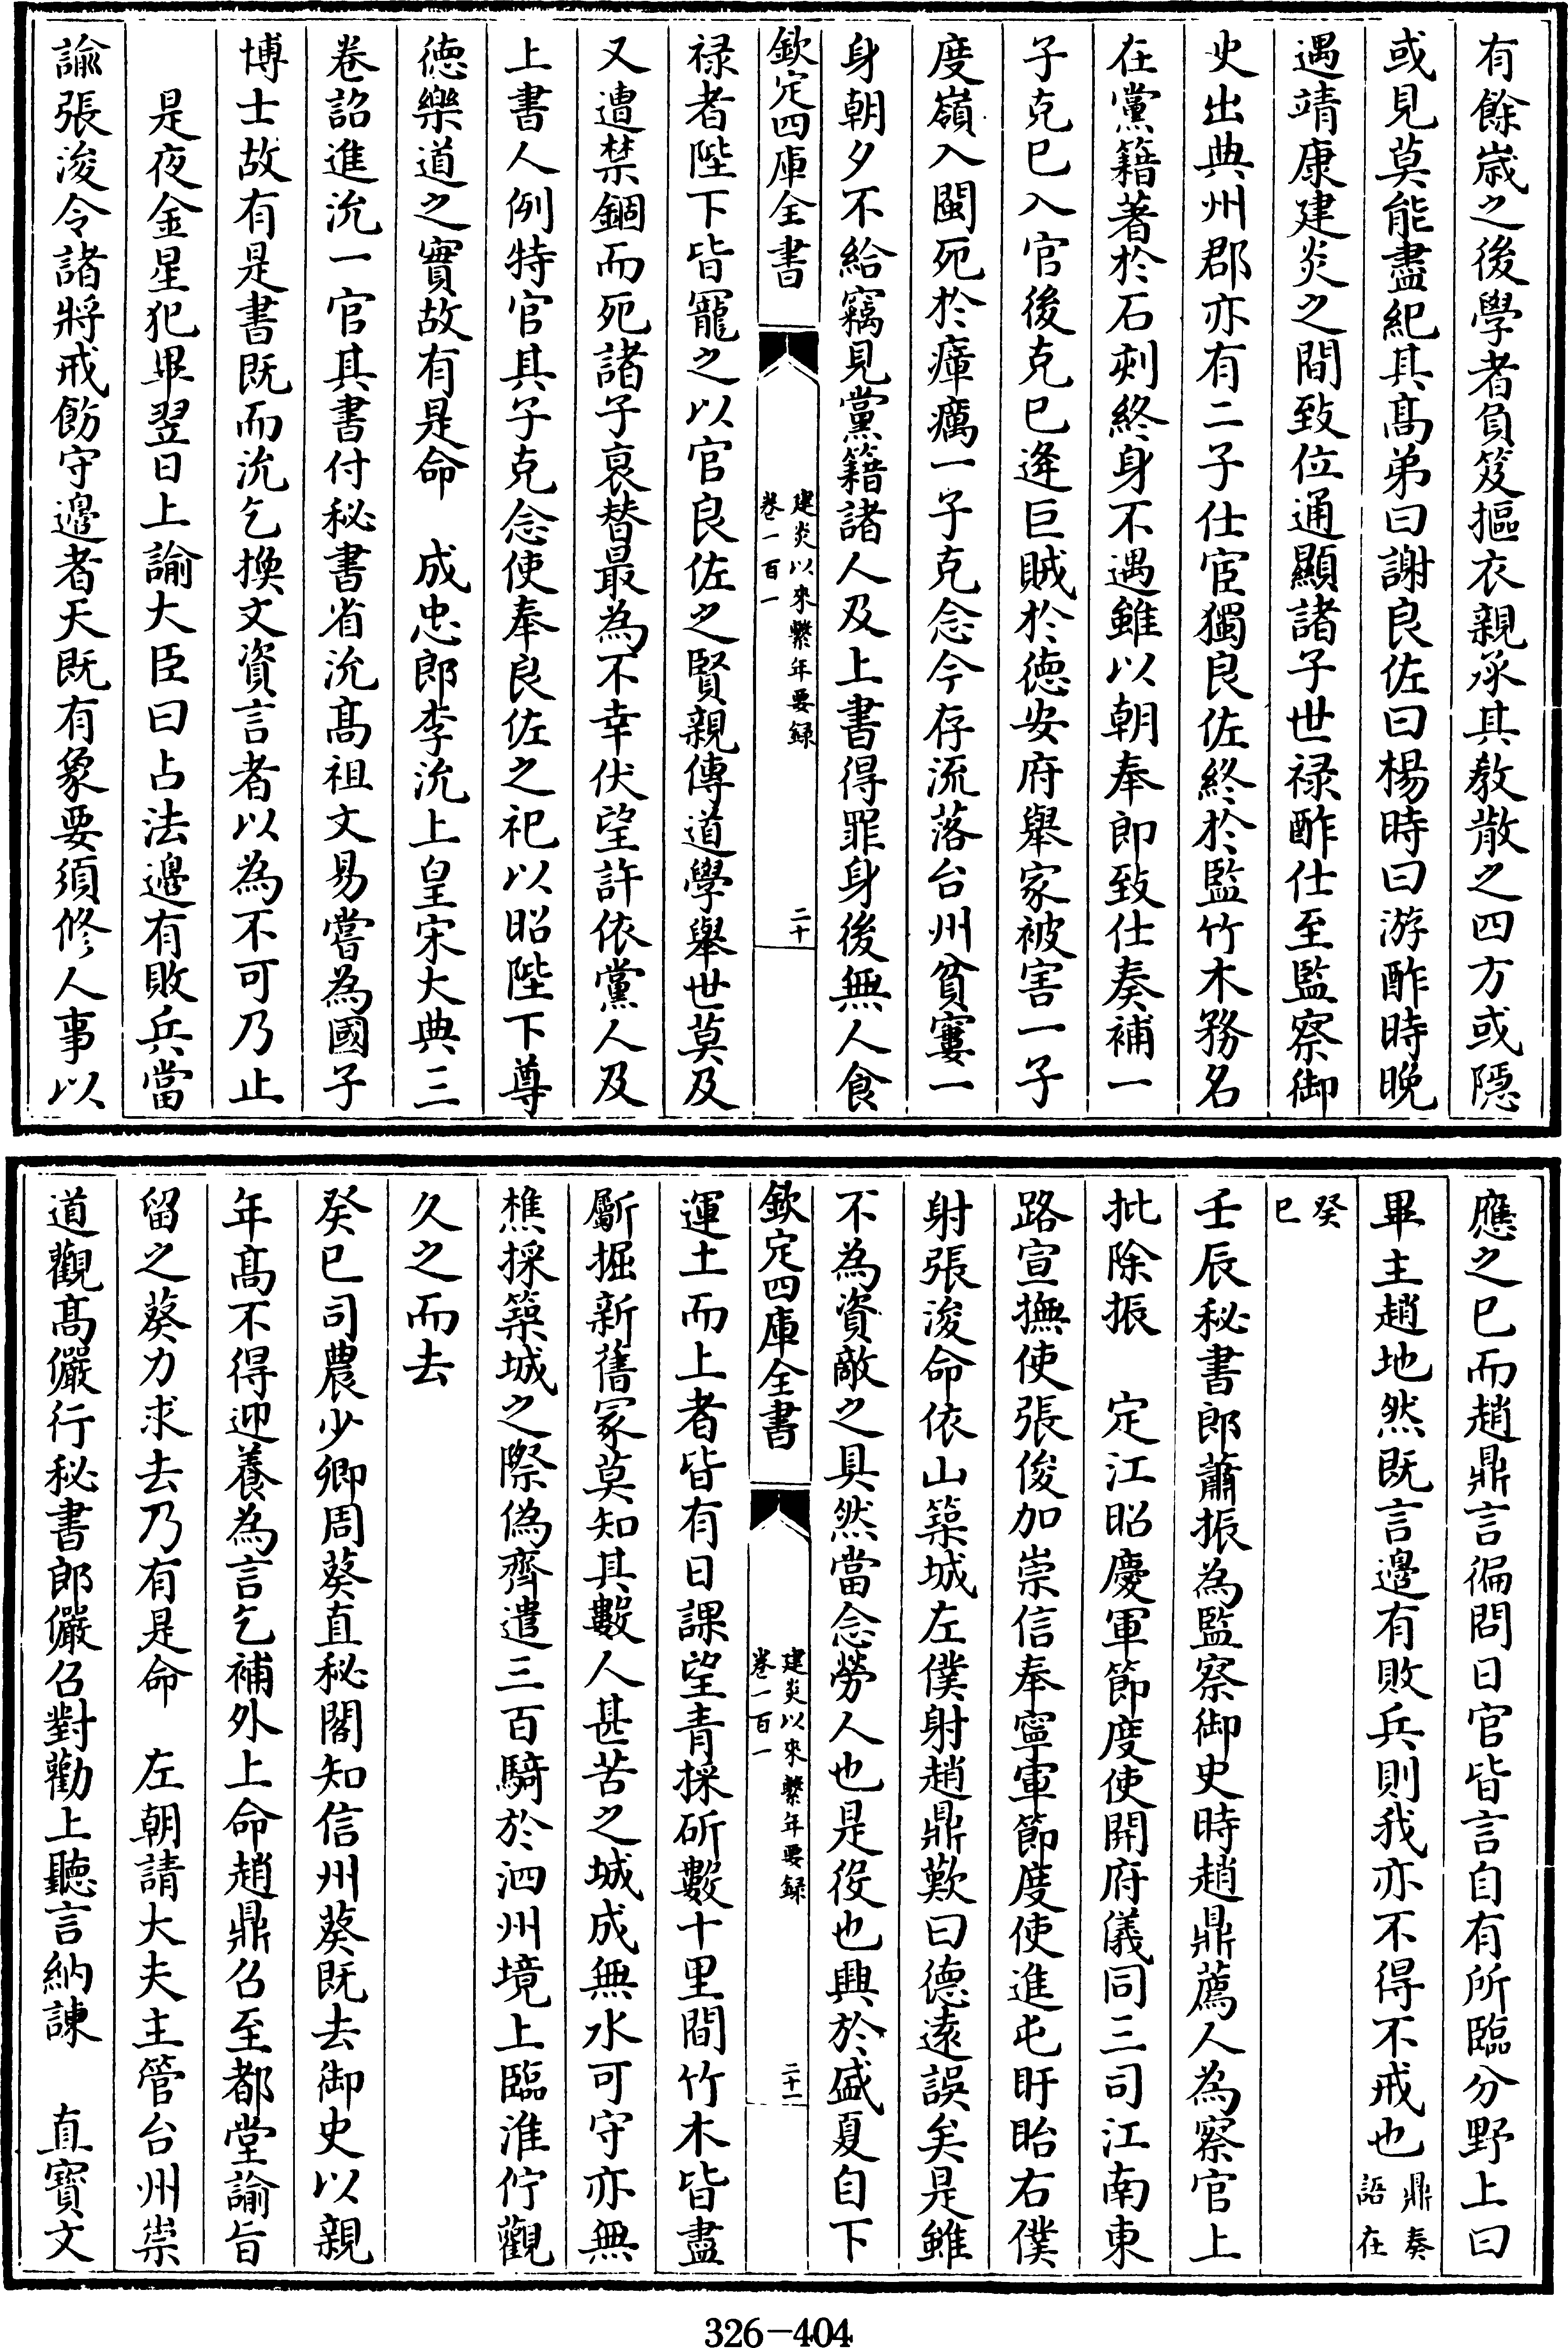 有餘歲之後學者負笈摳衣親承其教散之四方或隱
或見莫能盡紀其髙弟曰謝良佐曰楊時曰游酢時晚
遇靖康建炎之間致位通顯諸子世禄酢仕至監察御
史出典州郡亦有二子仕宦獨良佐終於監竹木務名
在黨籍著於石刻終身不遇雖以朝奉郎致仕奏補一
子克已入官後克已逄巨賊於德安府舉家被害一子
度嶺入閩死於瘴癘一子克念今存流落台州貧窶一
身朝夕不給竊見黨籍諸人及上書得罪身後無人食
欽定四庫全書
建炎以來繫年要録
卷一百一
二十
禄者陛下皆寵之以官良佐之賢親傳道學舉世莫及
又遭禁錮而死諸子衰替最為不幸伏望許依黨人及
上書人例特官其子克念使奉良佐之祀以昭陛下尊
德樂道之實故有是命　成忠郎李沇上皇宋大典三
卷詔進沇一官其書付秘書省沇髙祖文易嘗為國子
博士故有是書既而沇乞換文資言者以為不可乃止
是夜金星犯畢翌日上諭大臣曰占法邉有敗兵當
諭張浚令諸將戒飭守邉者天既有象要須修人事以
應之已而趙鼎言徧問日官皆言自有所臨分野上曰
畢主趙地然既言邉有敗兵則我亦不得不戒也鼎奏語在
癸巳
壬辰秘書郎蕭振為監察御史時趙鼎薦人為察官上
批除振　定江昭慶軍節度使開府儀同三司江南東
路宣撫使張俊加崇信奉寧軍節度使進屯盱眙右僕
射張浚命依山築城左僕射趙鼎歎曰德遠誤矣是雖
不為資敵之具然當念勞人也是役也興於盛夏自下
欽定四庫全書
建炎以來繫年要録
卷一百一
二十一
運土而上者皆有日課望青採斫數十里間竹木皆盡
斸掘新舊冢莫知其數人甚苦之城成無水可守亦無
樵採築城之際偽齊遣三百騎於泗州境上臨淮佇觀
久之而去
癸已司農少卿周葵直秘閣知信州葵既去御史以親
年髙不得迎養為言乞補外上命趙鼎召至都堂諭旨
留之葵力求去乃有是命　左朝請大夫主管台州崇
道觀髙儼行秘書郎儼召對勸上聽言納諫　直寳文
326-404